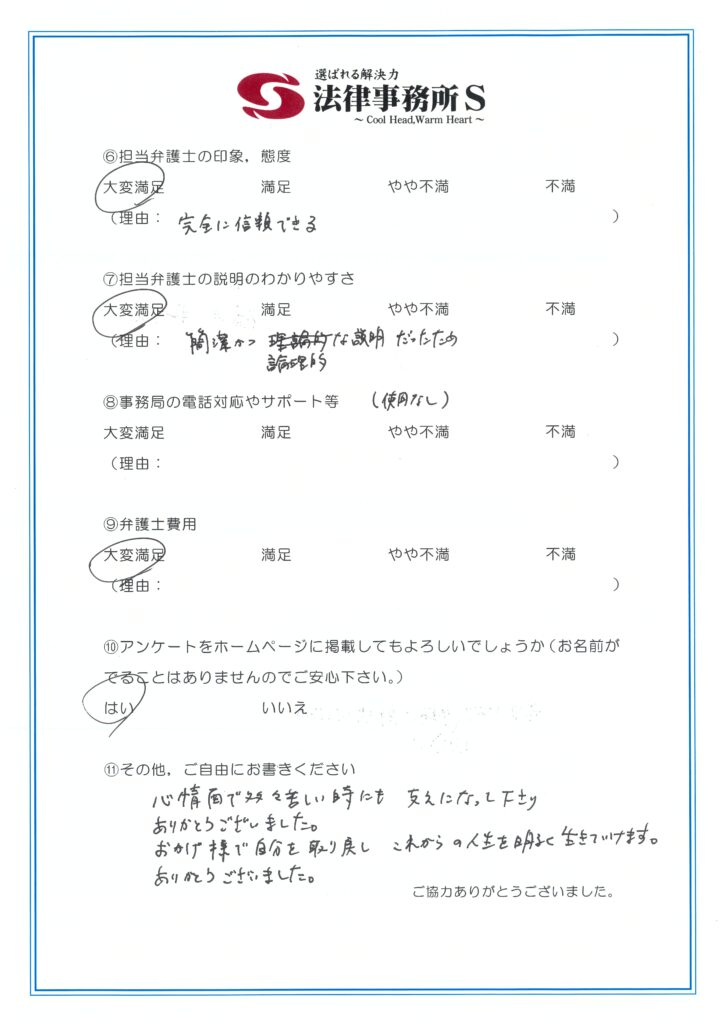 選ばれる解決力
法律事務所S
～Cool Head,Warm Heart～
⑥担当弁護士の印象，態度
大変満足 満足 やや不満 不満
（理由： 完全に信頼できる ）
⑦担当弁護士の説明のわかりやすさ
大変満足 満足 やや不満 不満
（理由： 簡潔かつ 理論的な説明 だったため ）
論理的
⑧事務局の電話対応やサポート等 （使用なし）
大変満足 満足 やや不満 不満
（理由： ）
⑨弁護士費用
大変満足 満足 やや不満 不満
（理由： ）
⑩アンケートをホームページに掲載してもよろしいでしょうか（お名前が
でることはありませんのでご安心下さい。）
はい いいえ
⑪その他，ご自由にお書きください
心情面で多々苦しい時にも 支えになって下さり
ありがとうございました。
おかげ様で自分を取り戻し これからの人生を明るく生きていけます。
ありがとうございました。
ご協力ありがとうございました。